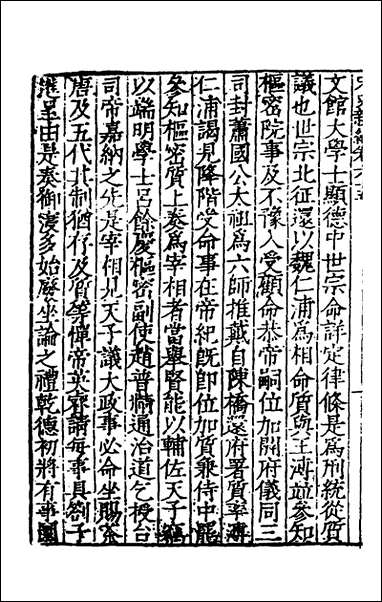 文館大學士顯德中世宗命詳定律條是為刑統從質
議也世宗北征還以魏仁浦為相命質與王溥並參知
樞密院事及不豫入受顧命恭帝嗣位加開府儀同三
司封蕭國公太祖為六師推戴自陳橋還府署質率溥
仁浦謁見降階受命事在帝紀既卽位加質兼侍中罷
參知樞密質上奏為宰相者當舉賢能以輔佐天子竊
以端明學士呂餘慶樞密副使趙普精通治道乞授台
司帝嘉納之先是宰相見天子議大政事必命坐賜茶
唐及五代此制猶存及質等憚帝英睿請每事具劄子
進呈由是奏御浸多始廢坐論之禮乾德初將有事圜